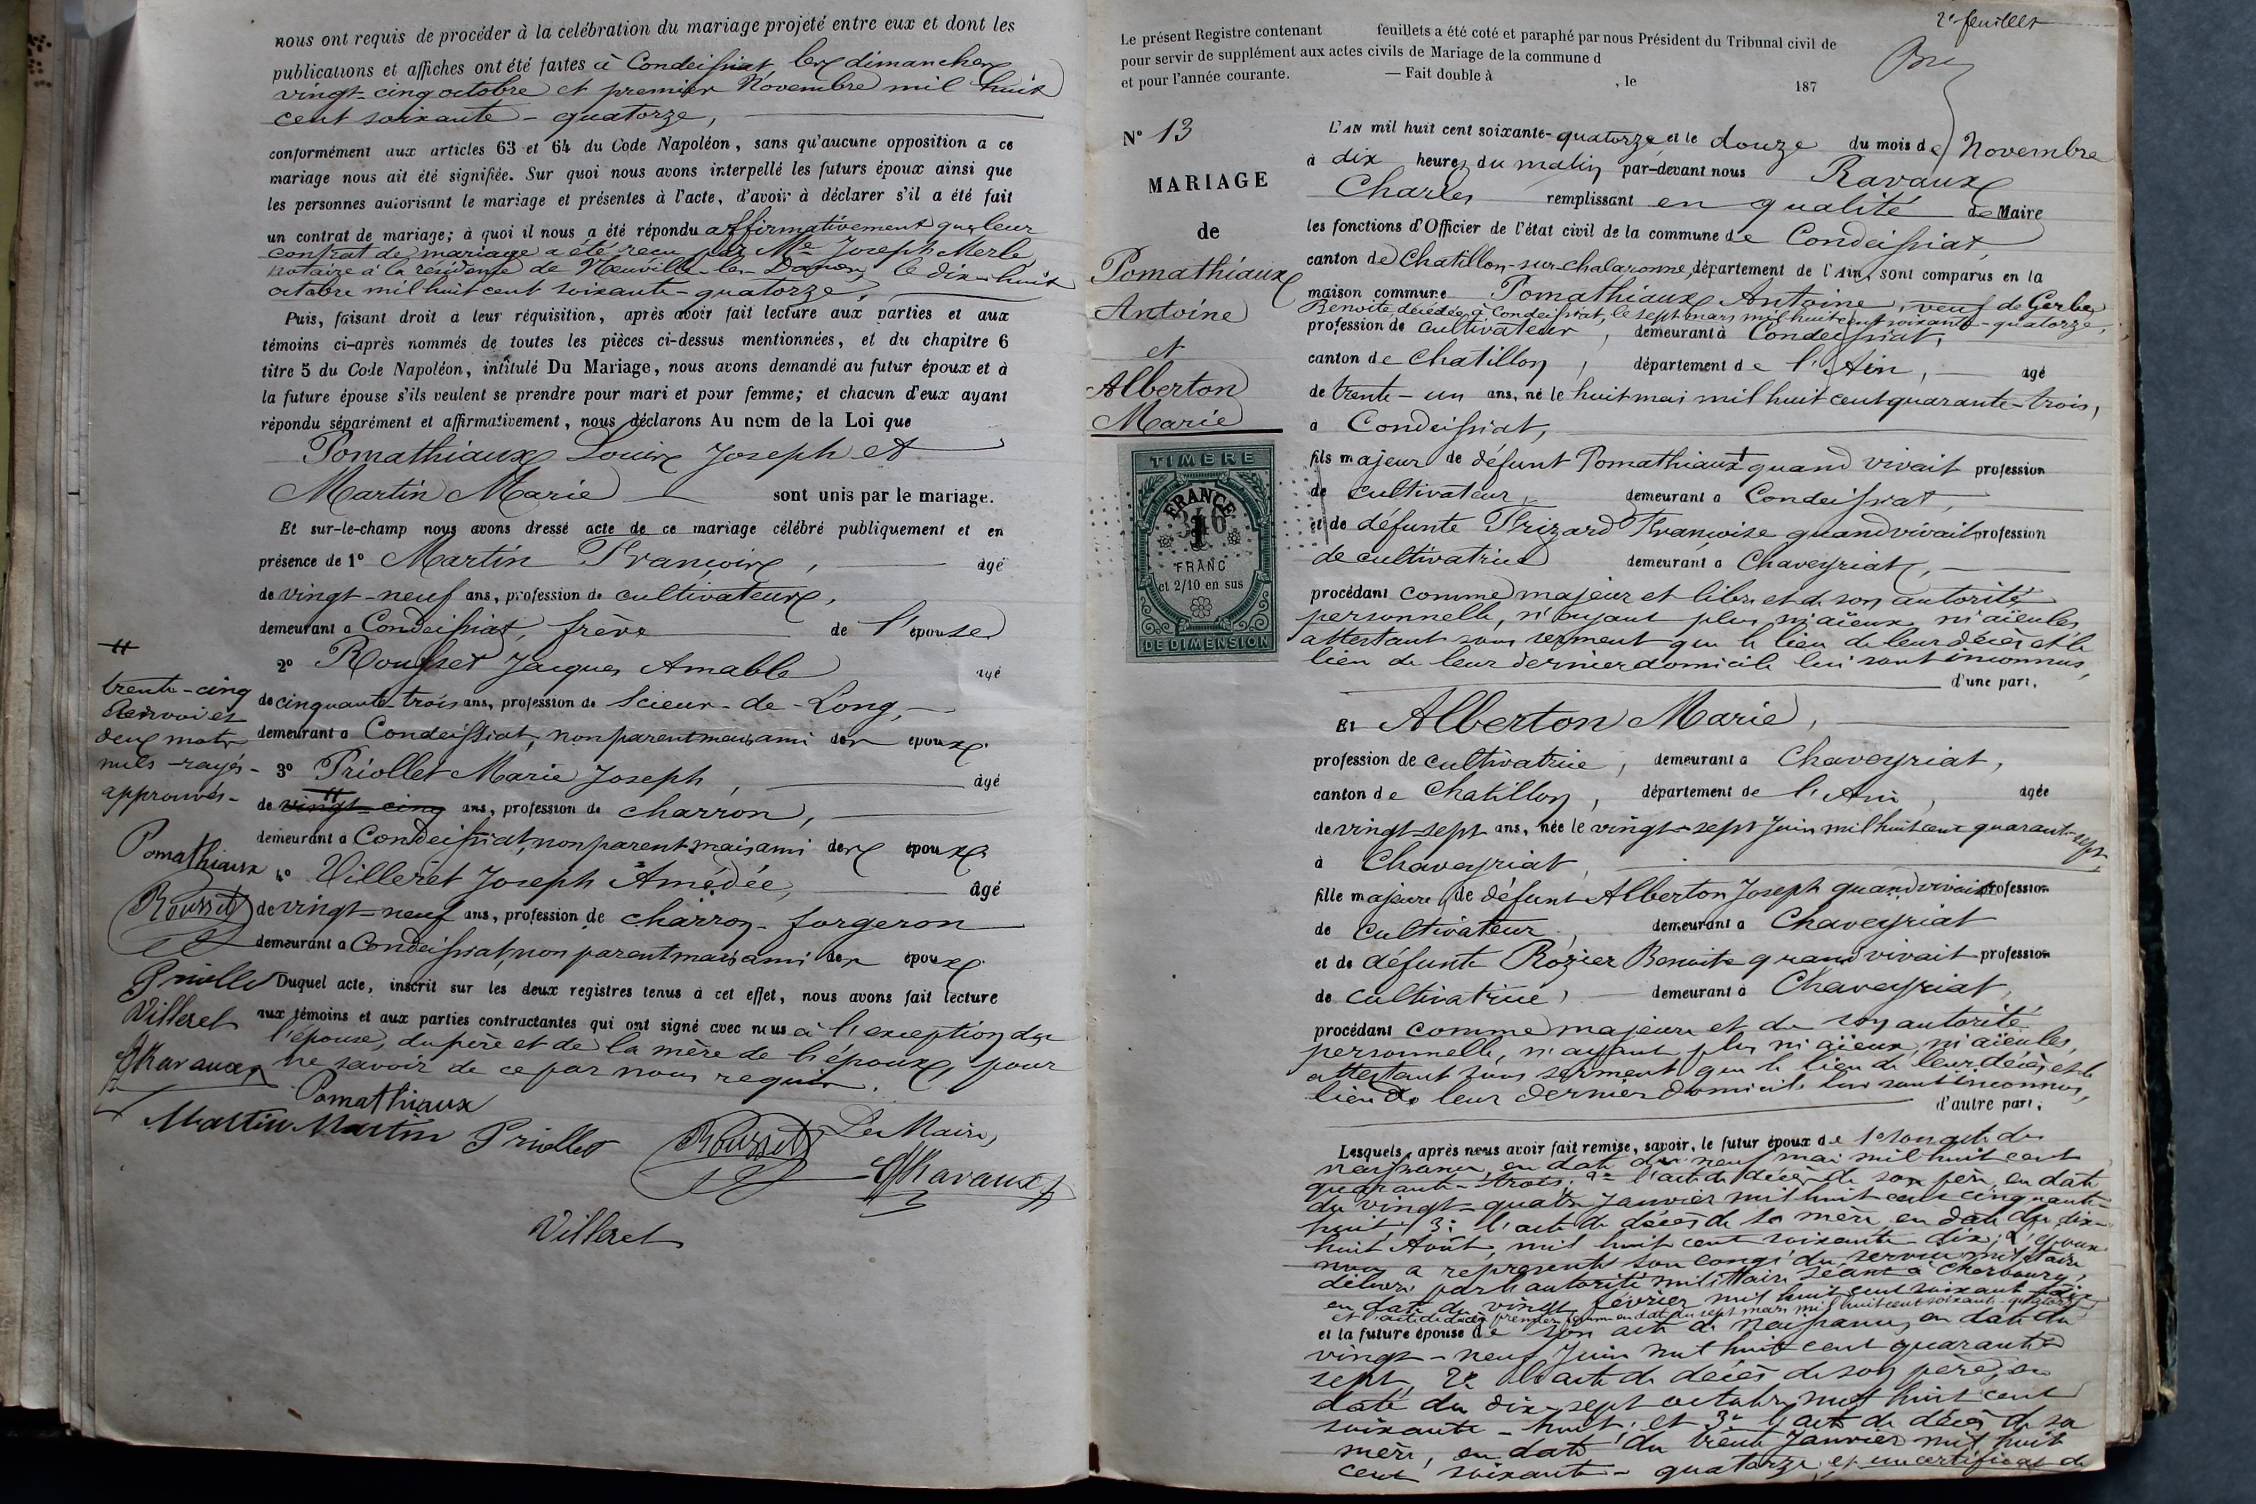 nous ont requis de procéder à la celébration du mariage projeté entre eux et dont les
publications et affiches ont été faites à Condeissiat les dimanches
vingt-cinq octobre et premier Novembre mil huit
cent soixante-quatorze,
conformément aux articles 63 et 64 du Code Napoléon, sans qu'aucune opposition a ce
mariage nous ait été signifiée. Sur quoi nous avons interpellé les futurs époux ainsi que
les personnes autorisant le mariage et présentes à l'acte, d'avoir à déclarer s'il a été fait
un contrat de mariage; à quoi il nous a été répondu affirmativement que leur
contrat de mariage a été reçu par Me Joseph Merle
notaire à la résidence de Neuville-les-Dames, le dix-huit
octobre mil huit cent soixante-quatorze.
Puis, faisant droit à leur réquisition, après avoir fait lecture aux parties et aux
témoins ci-après nommés de toutes les pièces ci-dessus mentionnées, et du chapitre 6
titre 5 du Code Napoléon, intitulé Du Mariage, nous avons demandé au futur époux et à
la future épouse s'ils veulent se prendre pour mari et pour femme; et chacun d'eux ayant
répondu séparément et affirmativement, nous déclarons Au nom de la Loi que
Pomathiaux Louis Joseph et
Martin Marie sont unis par le mariage.
Et sur-le-champ nous avons dressé acte de ce mariage célébré publiquement et en
présence de 1° Martin François, âgé
de vingt-neuf ans, profession de cultivateur,
demeurant a Condeissiat, frère de l'épouse
2° Rousset Jacques Amable âgé
de cinquante-trois ans, profession de Scieur-de-Long,
demeurant a Condeissiat, non parent mais ami des époux.
3° Priollet Marie Joseph, âgé
de vingt-cinq ans, profession de charron,
demeurant a Condeissiat, non parent mais ami des époux
4° Villeret Joseph Amédée, âgé
de vingt-neuf ans, profession de charron-forgeron
demeurant a Condeissiat, non parent mais ami des époux.
Duquel acte, inscrit sur les deux registres tenus à cet effet, nous avons fait lecture
aux témoins et aux parties contractantes qui ont signé avec nous à l'exception de
l'épouse, du père et de la mère de l'époux, pour
ne savoir de ce par nous requis.
Pomathiaux
Martin Martin Priollet Rousset Le Maire,
Ravaux
Villeret
trente-cinq
Renvoi et
deux mots
nuls rayés
approuvés
Pomathiaux
Rousset
Priollet
Villeret
Ravaux
2e feuillet
Le présent Registre contenant feuillets a été coté et paraphé par nous Président du Tribunal civil de
pour servir de supplément aux actes civils de Mariage de la commune d
et pour l'année courante. — Fait double à , le 187
N° 13
MARIAGE
de
Pomathiaux
Antoine
et
Alberton
Marie
TIMBRE
FRANCE
1
FRANC
et 2/10 en sus
DE DIMENSION
L'AN mil huit cent soixante-quatorze et le douze du mois de Novembre
à dix heures du matin par-devant nous Ravaux
Charles remplissant en qualité de Maire
les fonctions d'Officier de l'état civil de la commune de Condeissiat,
canton de Chatillon-sur-Chalaronne, département de l'Ain, sont comparus en la
maison commune Pomathiaux Antoine, veuf de Gerbe
Benoite décédée à Condeissiat, le sept mars mil huit cent soixante-quatorze,
profession de cultivateur, demeurant à Condeissiat,
canton de Chatillon, département de l'Ain, âgé
de trente-un ans, né le huit mai mil huit cent quarante-trois,
a Condeissiat,
fils majeur de défunt Pomathiaux quand vivait profession
de cultivateur, demeurant a Condeissiat,
et de défunte Frizard Françoise quand vivait profession
de cultivatrice demeurant a Chaveyriat,
procédant comme majeur et libre et de son autorité
personnelle, n'ayant plus ni aïeux ni aïeules
attestant sous serment que le lieu de leur décès et le
lieu de leur dernier domicile lui sont inconnus,
d'une part.
Et Alberton Marie,
profession de cultivatrice, demeurant a Chaveyriat,
canton de Chatillon, département de l'Ain, agée
de vingt-sept ans, née le vingt-sept Juin mil huit cent quarante-sept
à Chaveyriat,
fille majeure de défunt Alberton Joseph quand vivait profession
de cultivateur, demeurant a Chaveyriat
et de défunte Rozier Benoite quand vivait profession
de cultivatrice, demeurant a Chaveyriat,
procédant comme majeure et de son autorité
personnelle, n'ayant plus ni aïeux, ni aïeules,
attestant sous serment que le lieu de leur décès et le
lieu de leur dernier domicile lui sont inconnus,
d'autre part.
Lesquels, après nous avoir fait remise, savoir, le futur époux de 1° son acte de
naissance, en date du neuf mai mil huit cent
quarante-trois; 2° l'acte de décès de son père, en date
du vingt-quatre Janvier mil huit cent cinquante-
huit; 3° l'acte de décès de sa mère en date du dix-
huit Août mil huit cent soixante-dix;
nous a représenté son congé du service militaire
délivré par l'autorité militaire séant à Cherbourg,
en date du vingt février mil huit cent soixante-dix
et l'acte de décès première femme en date du sept mars mil huit cent soixante-quatorze
et la future épouse de son acte de naissance, en date du
vingt-neuf Juin mil huit cent quarante
sept, 2° l'acte de décès de son père, en
date du dix-sept octobre mil huit cent
soixante-huit; et 3° l'acte de décès de sa
mère, en date du trente Janvier mil huit
cent soixante-quatorze, et un certificat de